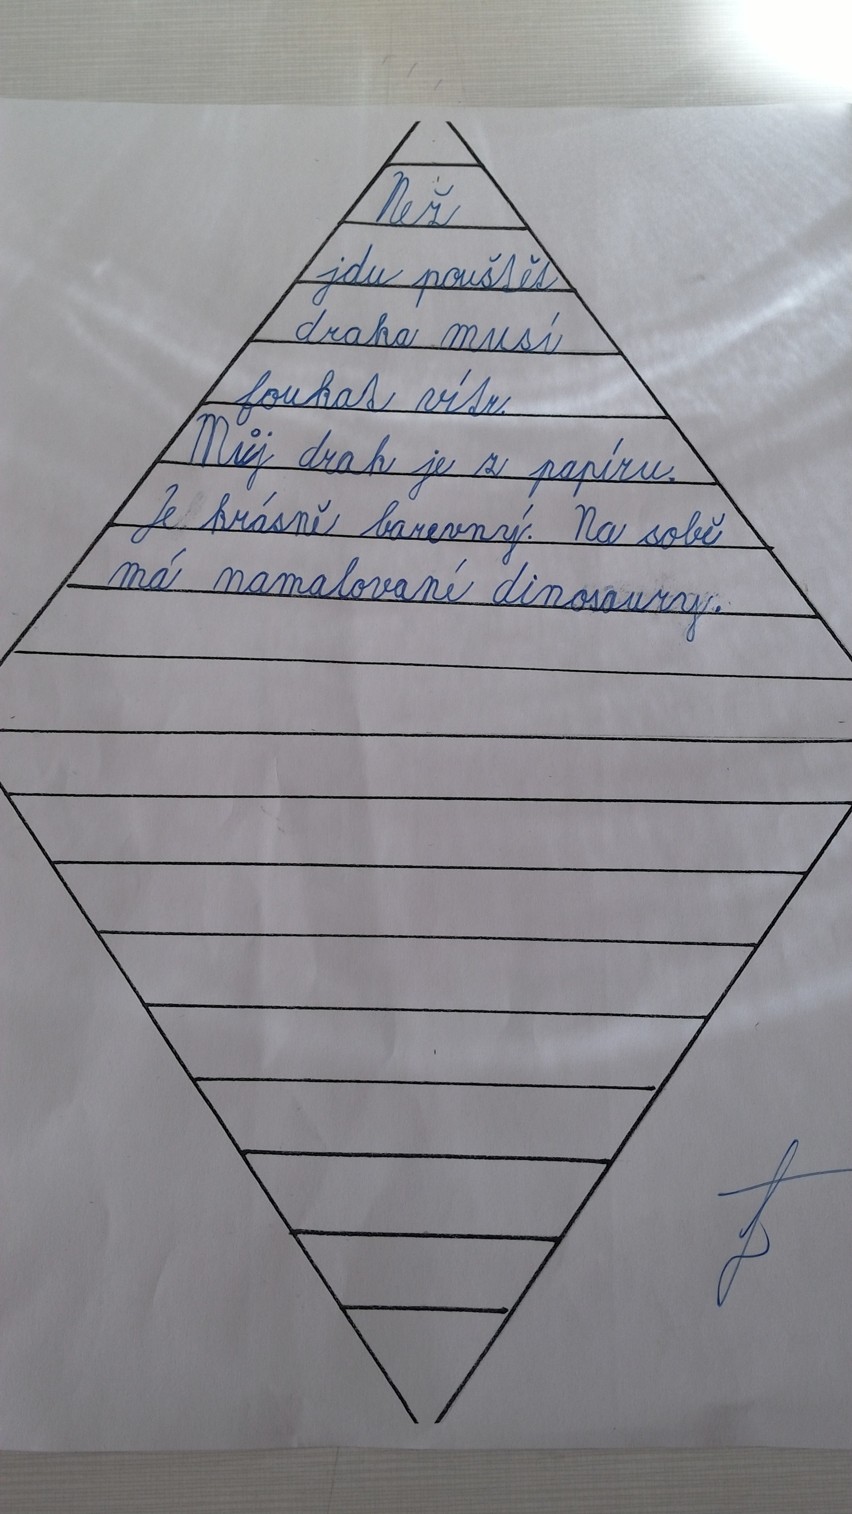 Než
jdu pouštět
draka musí
foukat vítr.
Můj drak je z papíru.
Je krásně barevný. Na sobě
má namalované dinosaury.